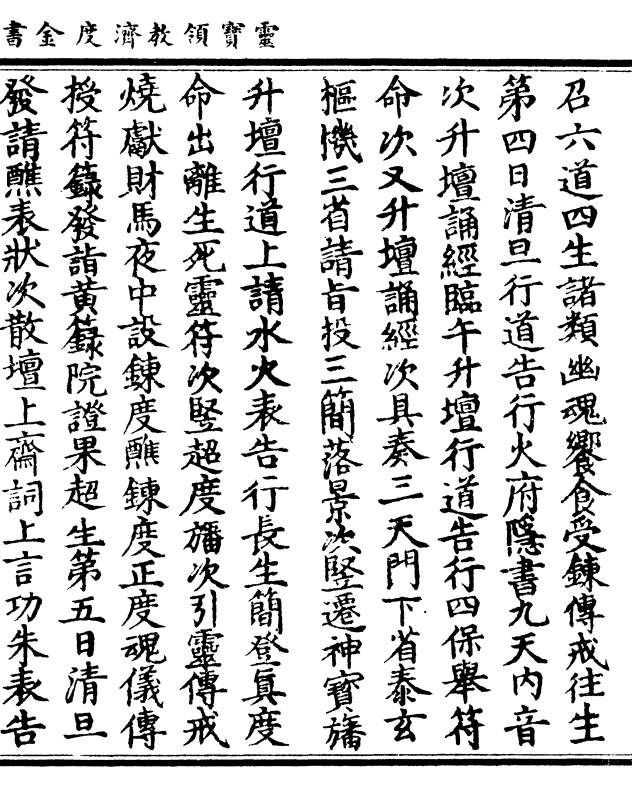 靈寶領教濟度金書
召六道四生諸類幽魂饗食受鍊傳戒往生
第四日清旦行道告行火府隱書九天內音
次升壇誦經臨午升壇行道告行四保舉符
命次又升壇誦經次具奏三天門下省泰玄
樞機三省請旨投三簡落景次豎遷神寶旛
升壇行道上請水火表告行長生簡登真度
命出離生死靈符次豎超度旛次引靈傳戒
燒獻財馬夜中設鍊度醮鍊度正度魂儀傳
授符籙發詣黃籙院證果超生第五日清旦
發請醮表狀次散壇上齋詞上言功朱表告